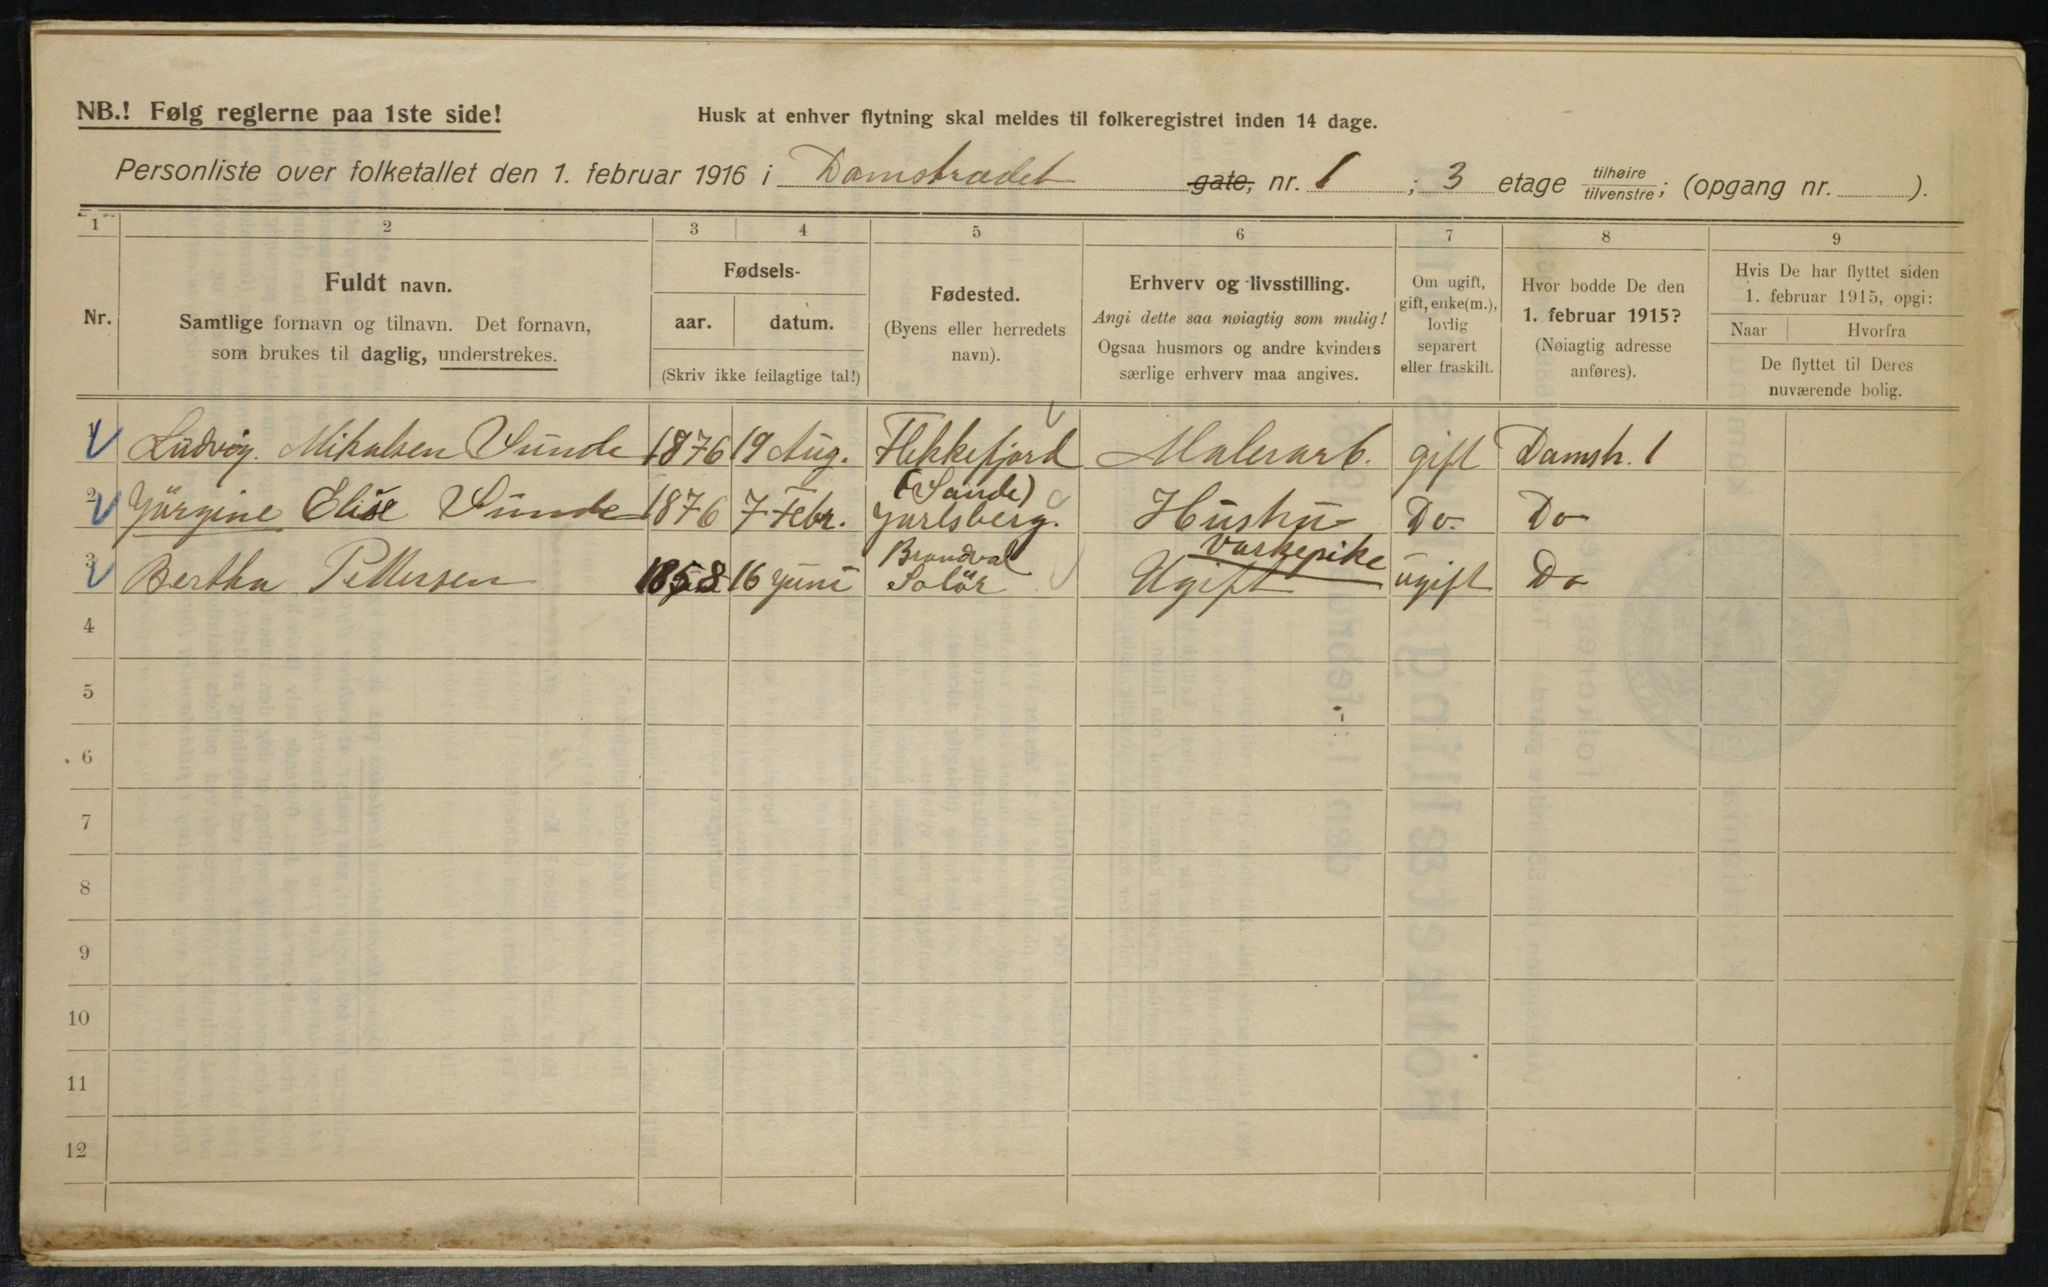 NB.! Følg reglerne paa 1ste side!
Husk at enhver flytning skal meldes til folkeregistret inden 14 dage.
Personliste over folketallet den 1. februar 1916 i Damstrædet gate, nr. 1 ; 3 etage tilhøire tilvenstre; (opgang nr. ).
1 2 3 4 5 6 7 8 9
Nr.
Fuldt navn.
Samtlige fornavn og tilnavn. Det fornavn,
som brukes til daglig, understrekes.
Fødsels-
aar. datum.
(Skriv ikke feilagtige tal!)
Fødested.
(Byens eller herredets
navn).
Erhverv og livsstilling.
Angi dette saa nøiagtig som mulig!
Ogsaa husmors og andre kvinders
særlige erhverv maa angives.
Om ugift,
gift, enke(m.),
lovlig
separert
eller fraskilt.
Hvor bodde De den
1. februar 1915?
(Nøiagtig adresse
anføres).
Hvis De har flyttet siden
1. februar 1915, opgi:
Naar Hvorfra
De flyttet til Deres
nuværende bolig.
1 Ludvig Mikalsen Sunde 1876 19 Aug. Flekkefjord Malerarb. gift Damstr. 1
2 Jørgine Elise Sunde 1876 7 Febr. (Sande) Jarlsberg. Hustru Do Do
3 Bertha Pettersen 1858 16 Juni Brandval Solör Ugift Varkepike ugift Do
4
5
6
7
8
9
10
11
12